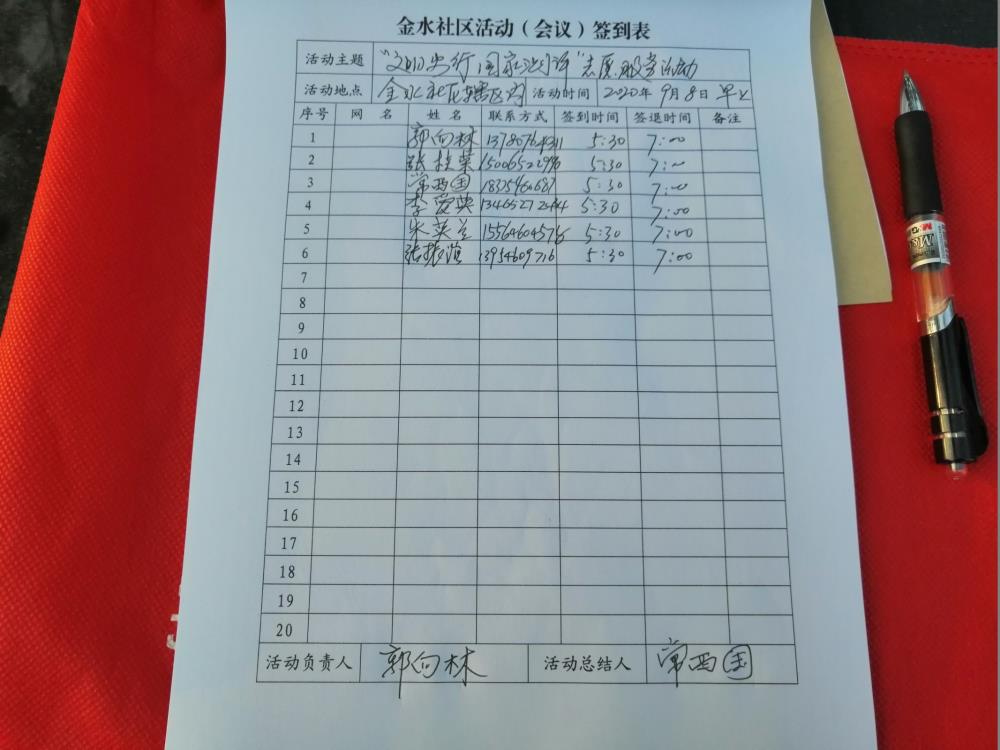 金水社区活动（会议）签到表
活动主题 "文明出行 国家法律"志愿服务活动
活动地点 金水社区辖区内 活动时间 2020年9月8日早上
序号 网名 姓名 联系方式 签到时间 签退时间 备注
1 郭向林 5:30 7:00
2 张扶荣 15006522996 5:30 7:00
3 常西国 5:30 7:00
4 李爱英 5:30 7:00
5 朱英兰 15564604576 5:30 7:00
6 张振滨 5:30 7:00
7
8
9
10
11
12
13
14
15
16
17
18
19
20
活动负责人 郭向林 活动总结人 常西国